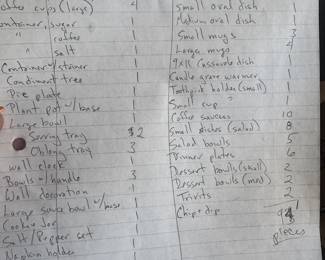 coffee cups (large) 4
container, sugar 1
" coffee 1
" salt 1
Container w/strainer 1
Condiment tree 1
Pie plate 1
Plant pot w/base 1
Large bowl 1
Serving tray $2
Oblong tray 3
wall clock 1
Bowls w/handle 3
Wall decoration 1
Large sauce bowl w/base 1
Cookie jar 1
Salt/Pepper set 1
Napkin holder
Small oval dish 1
Medium oval dish 1
Small mugs 3
Large mugs 4
9X11 Casserole dish 1
Candle arave warmer 1
Toothpick holder (small) 1
Small cup " 1
Coffee saucers 10
Small dishes (salad) 8
Salad bowls 5
Dinner plates 6
Dessert bowls (small) 2
Dessert bowls (med) 2
Trivits 2
Chip + dip 1
pieces